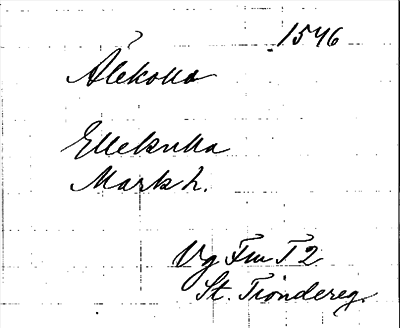 1546
Älekulla
Ellekulla
Mark h.
Vg Fm T 2
St. Tiondereg.